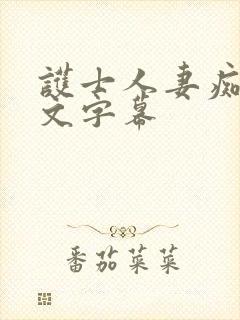 護士人妻痴
文字幕
番茄菜菜